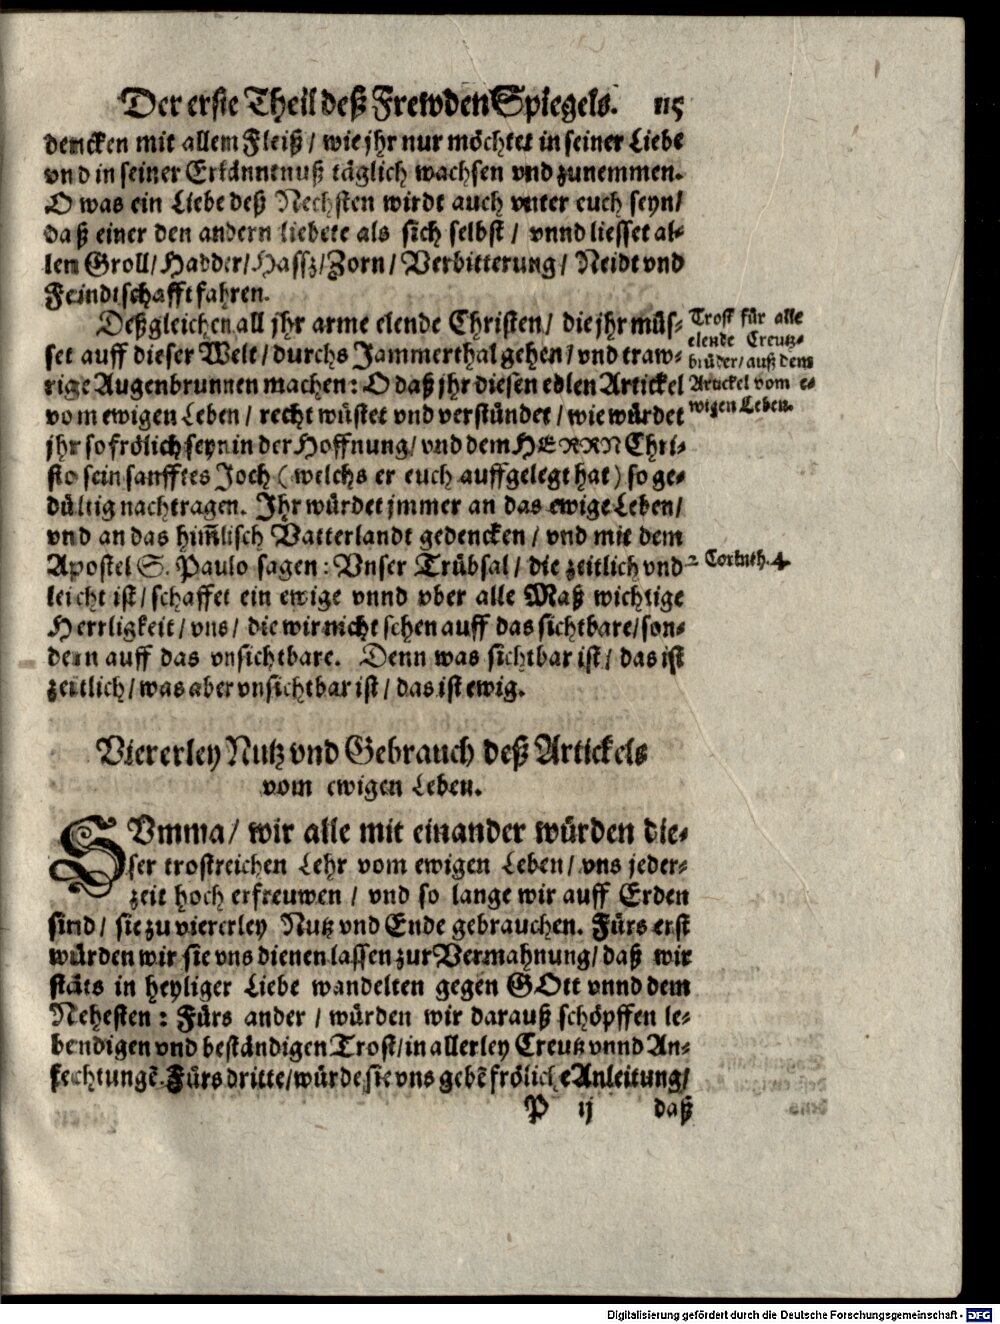 Der erste Theil deß Frewden Spiegels. 115
dencken mit allem Fleiß / wie jhr nur möchtet in seiner Liebe
vnd in seiner Erkänntnuß täglich wachsen vnd zunemmen.
O was ein Liebe deß Nechsten wirdt auch vnter euch seyn /
daß einer den andern liebete als sich selbst / vnnd liesset al-
len Groll / Hadder / Hassz / Zorn / Verbitterung / Neidt vnd
Feindtschafft fahren.
Deßgleichen all jhr arme elende Christen / die jhr müs-
set auff dieser Welt / durchs Jammerthal gehen / vnd traw-
rige Augenbrunnen machen: O daß jhr diesen edlen Artickel
vom ewigen Leben / recht wüstet vnd verstündet / wie würdet
jhr so frölich seyn in der Hoffnung / vnd dem HERRN Chri-
sto sein sanfftes Joch (welchs er euch auffgelegt hat) so ge-
dültig nachtragen. Ihr würdet jmmer an das ewige Leben /
vnd an das him̃lisch Vatterlandt gedencken / vnd mit dem
Apostel S. Paulo sagen: Vnser Trübsal / die zeitlich vnd
leicht ist / schaffet ein ewige vnnd vber alle Maß wichtige
Herrligkeit / vns / die wir nicht sehen auff das sichtbare / son-
dern auff das vnsichtbare. Denn was sichtbar ist / das ist
zeitlich / was aber vnsichtbar ist / das ist ewig.
Trost für alle
elende Creutz-
brüder / auß dem
Artickel vom e-
wigen Leben.
2. Corinth. 4.
Viererley Nutz vnd Gebrauch deß Artickels
vom ewigen Leben.
SVmma / wir alle mit einander würden die-
ser trostreichen Lehr vom ewigen Leben / vns jeder-
zeit hoch erfreuwen / vnd so lange wir auff Erden
sind / sie zu viererley Nutz vnd Ende gebrauchen. Fürs erst
würden wir sie vns dienen lassen zur Vermahnung / daß wir
stäts in heyliger Liebe wandelten gegen GOtt vnnd dem
Nehesten: Fürs ander / würden wir darauß schöpffen le-
bendigen vnd beständigen Trost / in allerley Creutz vnnd An-
fechtungẽ. Fürs dritte / würde sie vns gebẽ fröliche Anleitung /
P ij daß
Digitalisierung gefördert durch die Deutsche Forschungsgemeinschaft - DFG